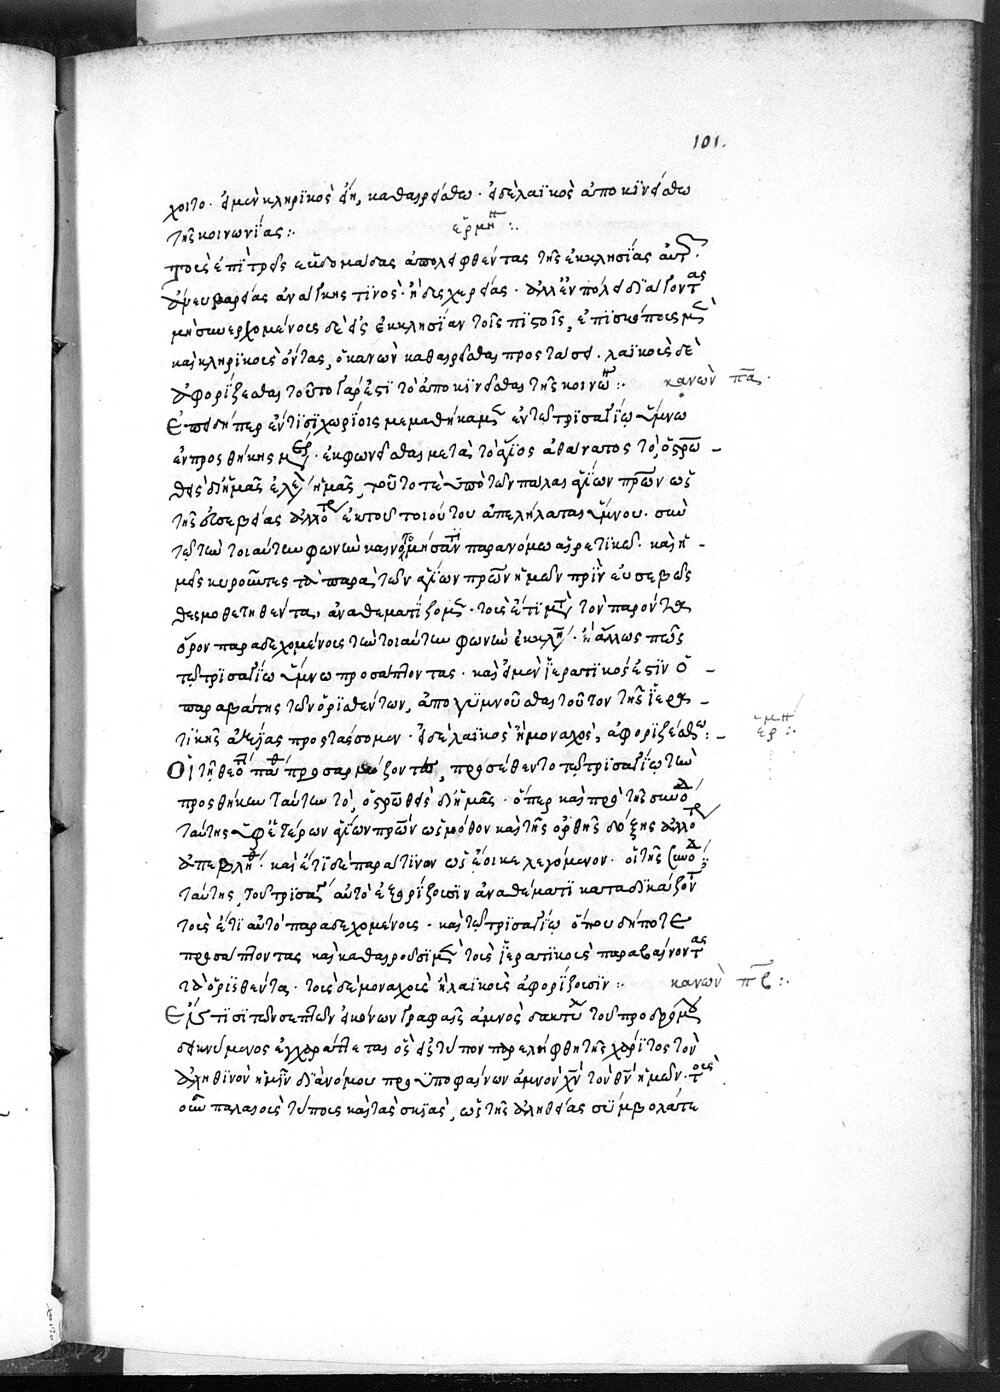 101.
χοιτο. εἰ μὲν κληρικὸς εἴη, καθαιρείσθω. εἰ δὲ λαϊκὸς ἀποκινείσθω
τῆς κοινωνίας :.
ἑρμη :.
τοὺς ἐπὶ τρεῖς εὐδομάδας ἀπολειφθέντας τῆς ἐκκλησίας αὐτ
ἄνευ βαρείας ἀνάγκης τινὸς. ἢ δυσχερείας. ἀλλ' ἐν πόλει διάγοντας
μὴ συνερχομένους δὲ εἰς ἐκκλησίαν τοῖς πιστοῖς, ἐπισκόπους μὲν
καὶ κληρικοὺς ὄντας, ὁ κανὼν καθαιρεῖσθαι προστάσσει. λαϊκοὺς δὲ
ἀφορίζεσθαι τοῦτο γάρ ἐστι τὸ ἀποκινεῖσθαι τῆς κοινω :. κανὼν πα.
Ἐπειδήπερ ἔν τισι χωρίοις μεμαθήκαμεν ἐν τῷ τρισαγίῳ ὕμνῳ
ἐν προσθήκης μέρει. ἐκφωνεῖσθαι μετὰ τὸ ἅγιος ἀθάνατος τὸ, ὁ σρω
θεὶς δι' ἡμᾶς ἐλέη ἡμᾶς, τοῦτο τὲ ὑπὸ τῶν πάλαι ἁγίων πρων ὡς
τῆς εὐσεβείας ἀλλότρ ἐκ τοῦ τοιούτου ἀπελήλαται ὕμνου. σὺν
τῷ τὴν τοιαύτην φωνὴν καινο παρανόμῳ αἱρετικῷ. καὶ ἡ
μεῖς κυροῦντες τὰ παρὰ τῶν ἁγίων πρων ἡμῶν πρὶν εὐσεβῶς
θεσμοθετηθέντα, ἀναθεματίζομεν. τοὺς ἔτι μετὰ τὸν παρόντα
ὅρον παραδεχομένους τὴν τοιαύτην φωνὴν ἐκκλη. ἢ ἄλλως πῶς
τῷ τρισαγίῳ ὕμνῳ προσάπτοντας. καὶ εἰ μὲν ἱερατικός ἐστιν ὁ
παραβάτης τῶν ὁρισθέντων, ἀπογυμνοῦσθαι τοῦτον τῆς ἱερα
τικῆς ἀξίας προστάσσομεν. εἰ δὲ λαϊκὸς ἢ μοναχὸς, ἀφοριζέσθω :.
ερμη :.
Οἱ τῇ θεό πά προσαρμόζοντες, προσέθεντο τῷ τρισαγίῳ τὴν
προσθήκην ταύτην τὸ, ὁ σρωθεὶς δι' ἡμᾶς. ὅπερ καὶ πρὸ τῆς συνόδ
ταύτης ὑφ' ἑτέρων ἁγίων πρων ὡς μόθον καὶ τῆς ὀρθῆς δόξης ἀλλότρ
ἀπεβλήθ. καὶ ἔτι δὲ παρά τινων ὡς ἔοικε λεγόμενον. οἱ τῆς συνόδ
ταύτης, τοῦ τρισαγ αὐτὸ ἐξορίζουσιν ἀναθέματι καταδικάζοντ
τοὺς ἔτι αὐτὸ παραδεχομένους. καὶ τῷ τρισαγίῳ ὅπου δήποτε
προσάπτοντας καὶ καθαιροῦσι μὲν τοὺς ἱερατικοὺς παραβαίνοντας
τὰ ὁρισθέντα. τοὺς δὲ μοναχοὺς ἢ λαϊκοὺς ἀφορίζουσιν :. κανὼν πβ :.
Ἔν τισι τῶν σεπτῶν εἰκόνων γραφαῖς ἀμνὸς δακτύλ τοῦ προδρόμου
δεικνύμενος ἐγχαράττεται ὃς εἰς τύπον παρελήφθη τῆς χάριτος τὸν
ἀληθινὸν ἡμῖν διὰ νόμου προϋποφαίνων ἀμνὸν χν τὸν θν ἡμῶν. τοὺς
οὖν παλαιοὺς τύπους καὶ τὰς σκιὰς, ὡς τῆς ἀληθείας σύμβολά τε